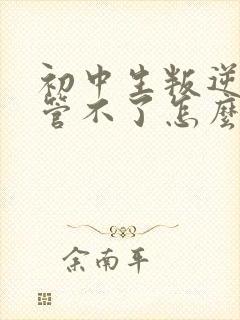 初中生叛逆
管不了怎麼
余南平